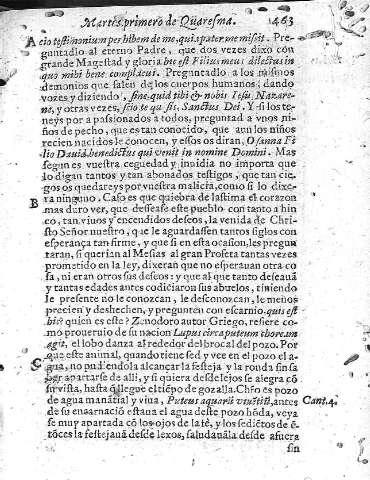 Martes primero de Quaresma. 463
A cio testimonium perhibem de me, qui spater me missit. Pre-
guntadlo al eterno Padre, que dos vezes dixo con
grande Magestad y gloria hic est Filius meus dilectus in
quo mihi bene complacui. Preguntadlo a los mismos
demonios que salen de los cuerpos humanos; dando
vozes y diziendo, sine quid tibi & nobis Iesu Nazare-
ne, y otras vezes, scio te qu sis, Sanctus Dei. Y si los te-
neys por apassionados a todos, preguntad a vnos niños
de pecho, que es tan conocido, que aun los niños
recien nacidos le conocen, y essos os diran, Osanna Fi-
lio Dauid, benedictus qui venit in nomine Domini. Mas
segun es vuestra ceguedad y inuidia no importa que
lo digan tantos y tan abonados testigos, que tan cie-
gos os quedareys por vuestra malicia, como si lo dixe-
B ra ninguno. Caso es que quiebra de lastima el coraçon
mas duro ver, que dessease este pueblo con tanto ahin
co, tan viuos y encendidos deseos, la venida de Chri-
sto Señor nuestro, que le aguardassen tantos siglos con
esperança tan firme, y que si en esta ocasion, les pregun
taran, si querian al Mesias al gran Profeta tantas vezes
prometido en la ley, dixeran que no esperauan otra co
sa, ni eran otros sus deseos: y que al que tanto deseauā
y tantas edades antes codiciaron sus abuelos, tiniendo
le presente no le conozcan, le desconozcan, le menos
precien y deshechen, y pregunten con escarnio. quis est
hic? quien es este? Zunodoro autor Griego, refiere co-
mo prouerbio de su nacion Lupus circa puteum choreum
agit, el lobo danza al rededor del brocal del pozo. Por
C que este animal, quando tiene sed y vee en el pozo el a-
gua, no pudiendola alcançar la festeja y la ronda sin sa
ber apartarse de alli, y si quiera desde lejos se alegra cō
su vista, hasta q̄ llegue el tiēpo de gozalla. Chřo es pozo
de agua manātial y viua, Puteus aquarū viuētiū, antes Cant. 4.
de su encarnació estaua el agua deste pozo hōda, veya
se muy apartada cō los ojos de la fè, y los sediētos de ē-
tōces la festejauā desde lexos, saludauāla desde afuera
sin